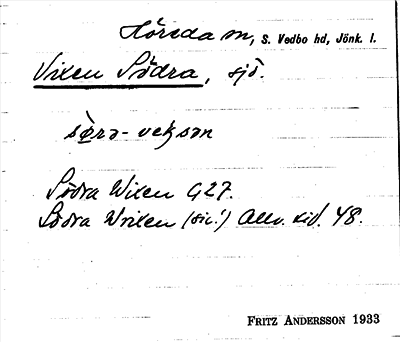 Höreda sn, S. Vedbo hd, Jönk. l.
Vixen Södra, sjö.
sø̀rа- vek̬sən
Södra Wixen G27.
Södra Wrixen (sic!) Allv. kid. 48.
FRITZ ANDERSSON 1933